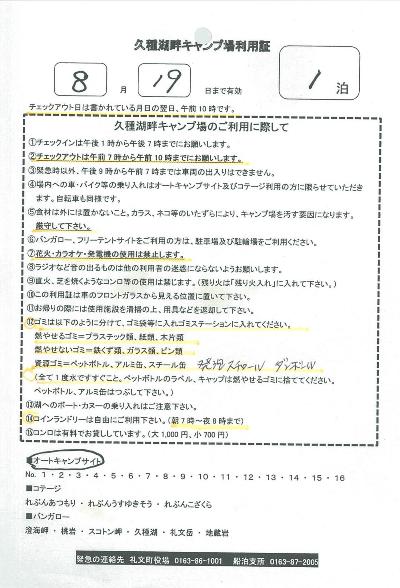 久種湖畔キャンプ場利用証
8 月 19 日まで有効 1 泊
チェックアウト日は書かれている月日の翌日、午前10時です。
久種湖畔キャンプ場のご利用に際して
①チェックインは午後1時から午後7時までにお願いします。
②チェックアウトは午前7時から午前10時までにお願いします。
③緊急時以外、午後9時から午前7時までは車両の出入りはできません。
④場内への車・バイク等の乗り入れはオートキャンプサイト及びコテージ利用の方に限らせていただき
ます。自転車も同様です。
⑤食材は外には置かないこと。カラス、ネコ等のいたずらにより、キャンプ場を汚す要因になります。
厳守して下さい。
⑥バンガロー、フリーテントサイトをご利用の方は、駐車場及び駐輪場をご利用ください。
⑦花火・カラオケ・発電機の使用は禁止します。
⑧ラジオなど音の出るものは他の利用者の迷惑にならないようお願いします。
⑨直火、芝を焼くようなコンロ等の使用は禁じます。（残り火は「残り火入れ」に入れて下さい。）
⑩この利用証は車のフロントガラスから見える位置に置いて下さい。
⑪お帰りの際には使用施設を清掃の上、用具などを返却して下さい。
⑫ゴミは以下のように分けて、ゴミ袋等に入れゴミステーションに入れてください。
燃やせるゴミ=プラスチック類、紙類、木片類
燃やせないゴミ=鉄くず類、ガラス類、ビン類
資源ゴミ=ペットボトル、アルミ缶、スチール缶 発泡スチロール ダンボール
（全て1度水ですすぐこと。ペットボトルのラベル、キャップは燃やせるゴミに捨ててください。
ペットボトル、アルミ缶はつぶして下さい。）
⑬湖へのボート・カヌーの乗り入れはご注意下さい。
⑭コインランドリーは自由にご利用下さい。（朝7時～夜8時まで）
⑮コンロは有料でお貸ししています。（大1,000円、小700円）
■オートキャンプサイト
No. 1・2・3・4・5・6・7・8・9・10・11・12・13・14・15・16
■コテージ
れぶんあつもり・れぶんうすゆきそう・れぶんこざくら
■バンガロー
澄海岬・桃岩・スコトン岬・久種湖・礼文岳・地蔵岩
緊急の連絡先 礼文町役場 0163-86-1001 船泊支所 0163-87-2005